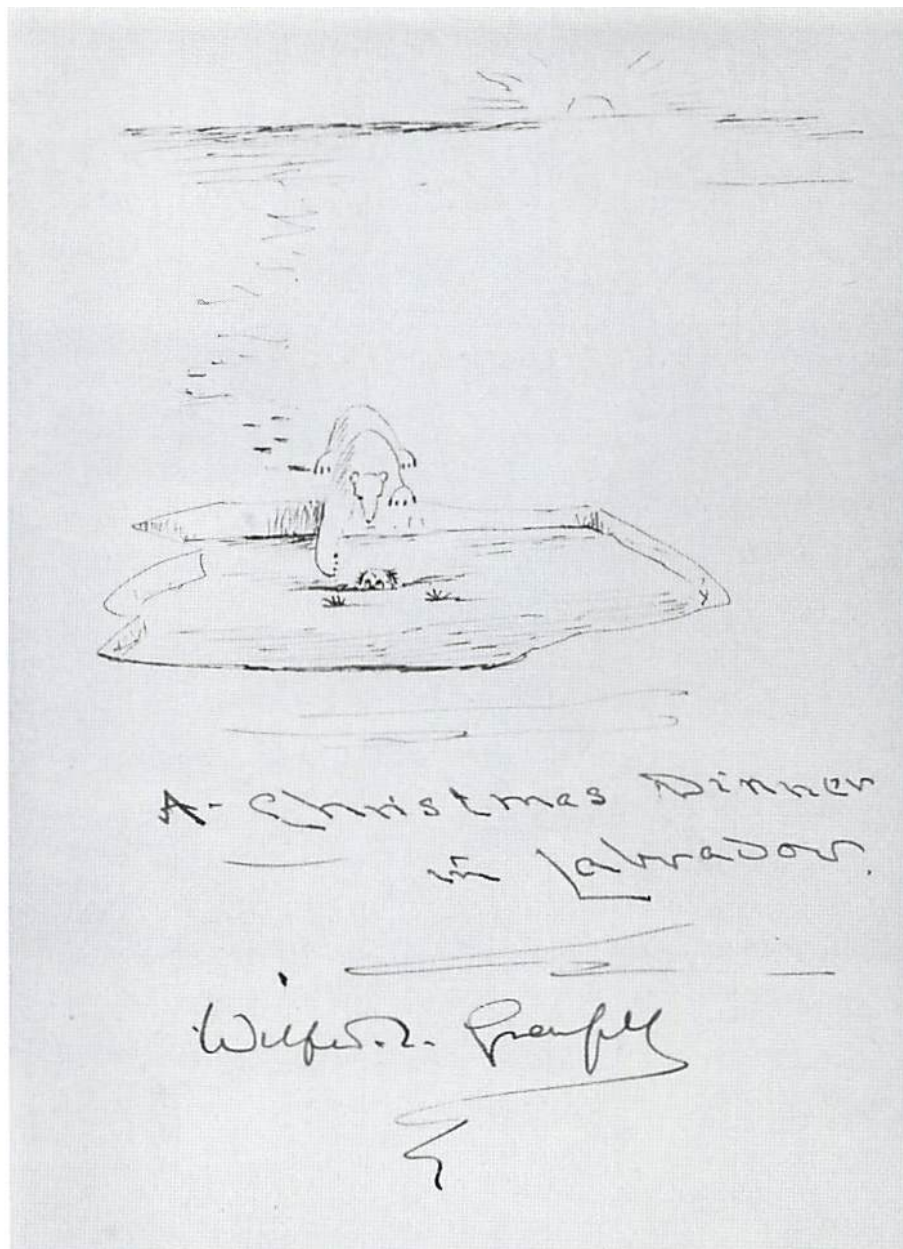 A- Christmas Dinner
in Labrador.
Wilfred. T. Grenfell